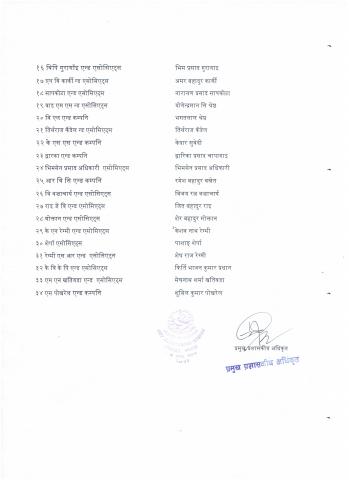 १६ बिपि गुरागाईं एन्ड एसोसिएट्स भिम प्रसाद गुरागाई
१७ एच बि कार्की न्ड एसोसिएट्स अमर बहादुर कार्की
१८ सापकोटा एन्ड एसोसिएट्स नारायण प्रसाद सापकोटा
१९ वाइ एस एम न्ड एसोसिएट्स योगेन्द्रमान सि श्रेष्ठ
२० बि एल एन्ड कम्पनि भगतलाल श्रेष्ठ
२१ तिर्थराज कँडेल न्ड एसोसिएट्स तिर्थराज कँडेल
२२ के एस एस एन्ड कम्पनि केदार सुवेदी
२३ द्वारका एन्ड कम्पनि द्वारिका प्रसाद चापागाइ
२४ भिमसेन प्रसाद अधिकारी एसोसिएट्स भिमसेन प्रसाद अधिकारी
२५ आर बि सि एन्ड कम्पनि रमेश बहादुर बस्नेत
२६ बि बज्राचार्य एन्ड एसोसिएट्स विजय रत्न बज्राचार्य
२७ राइ जे बि एन्ड एसोसिएट्स जित बहादुर राइ
२८ मोक्तान एन्ड एसोसिएट्स शेर बहादुर मोक्तान
२९ के एन रेग्मी एन्ड एसोसिएट्स केशव नाथ रेग्मी
३० शेर्पा एसोसिएट्स पासाङ शेर्पा
३१ रेग्मी एस आर एन्ड एसोसिएट्स शेष राज रेग्मी
३२ के बि के पि एन्ड एसोसिएट्स किर्ति भाजन कुमार प्रधान
३३ एम एन खतिवडा एन्ड एसोसिएट्स मेघनाथ शर्मा खतिवडा
३४ एस पोखरेल एन्ड कम्पनि सुजिल कुमार पोखरेल
प्रमुख प्रशासकीय अधिकृत
प्रमुख प्रशासकीय अधिकृत